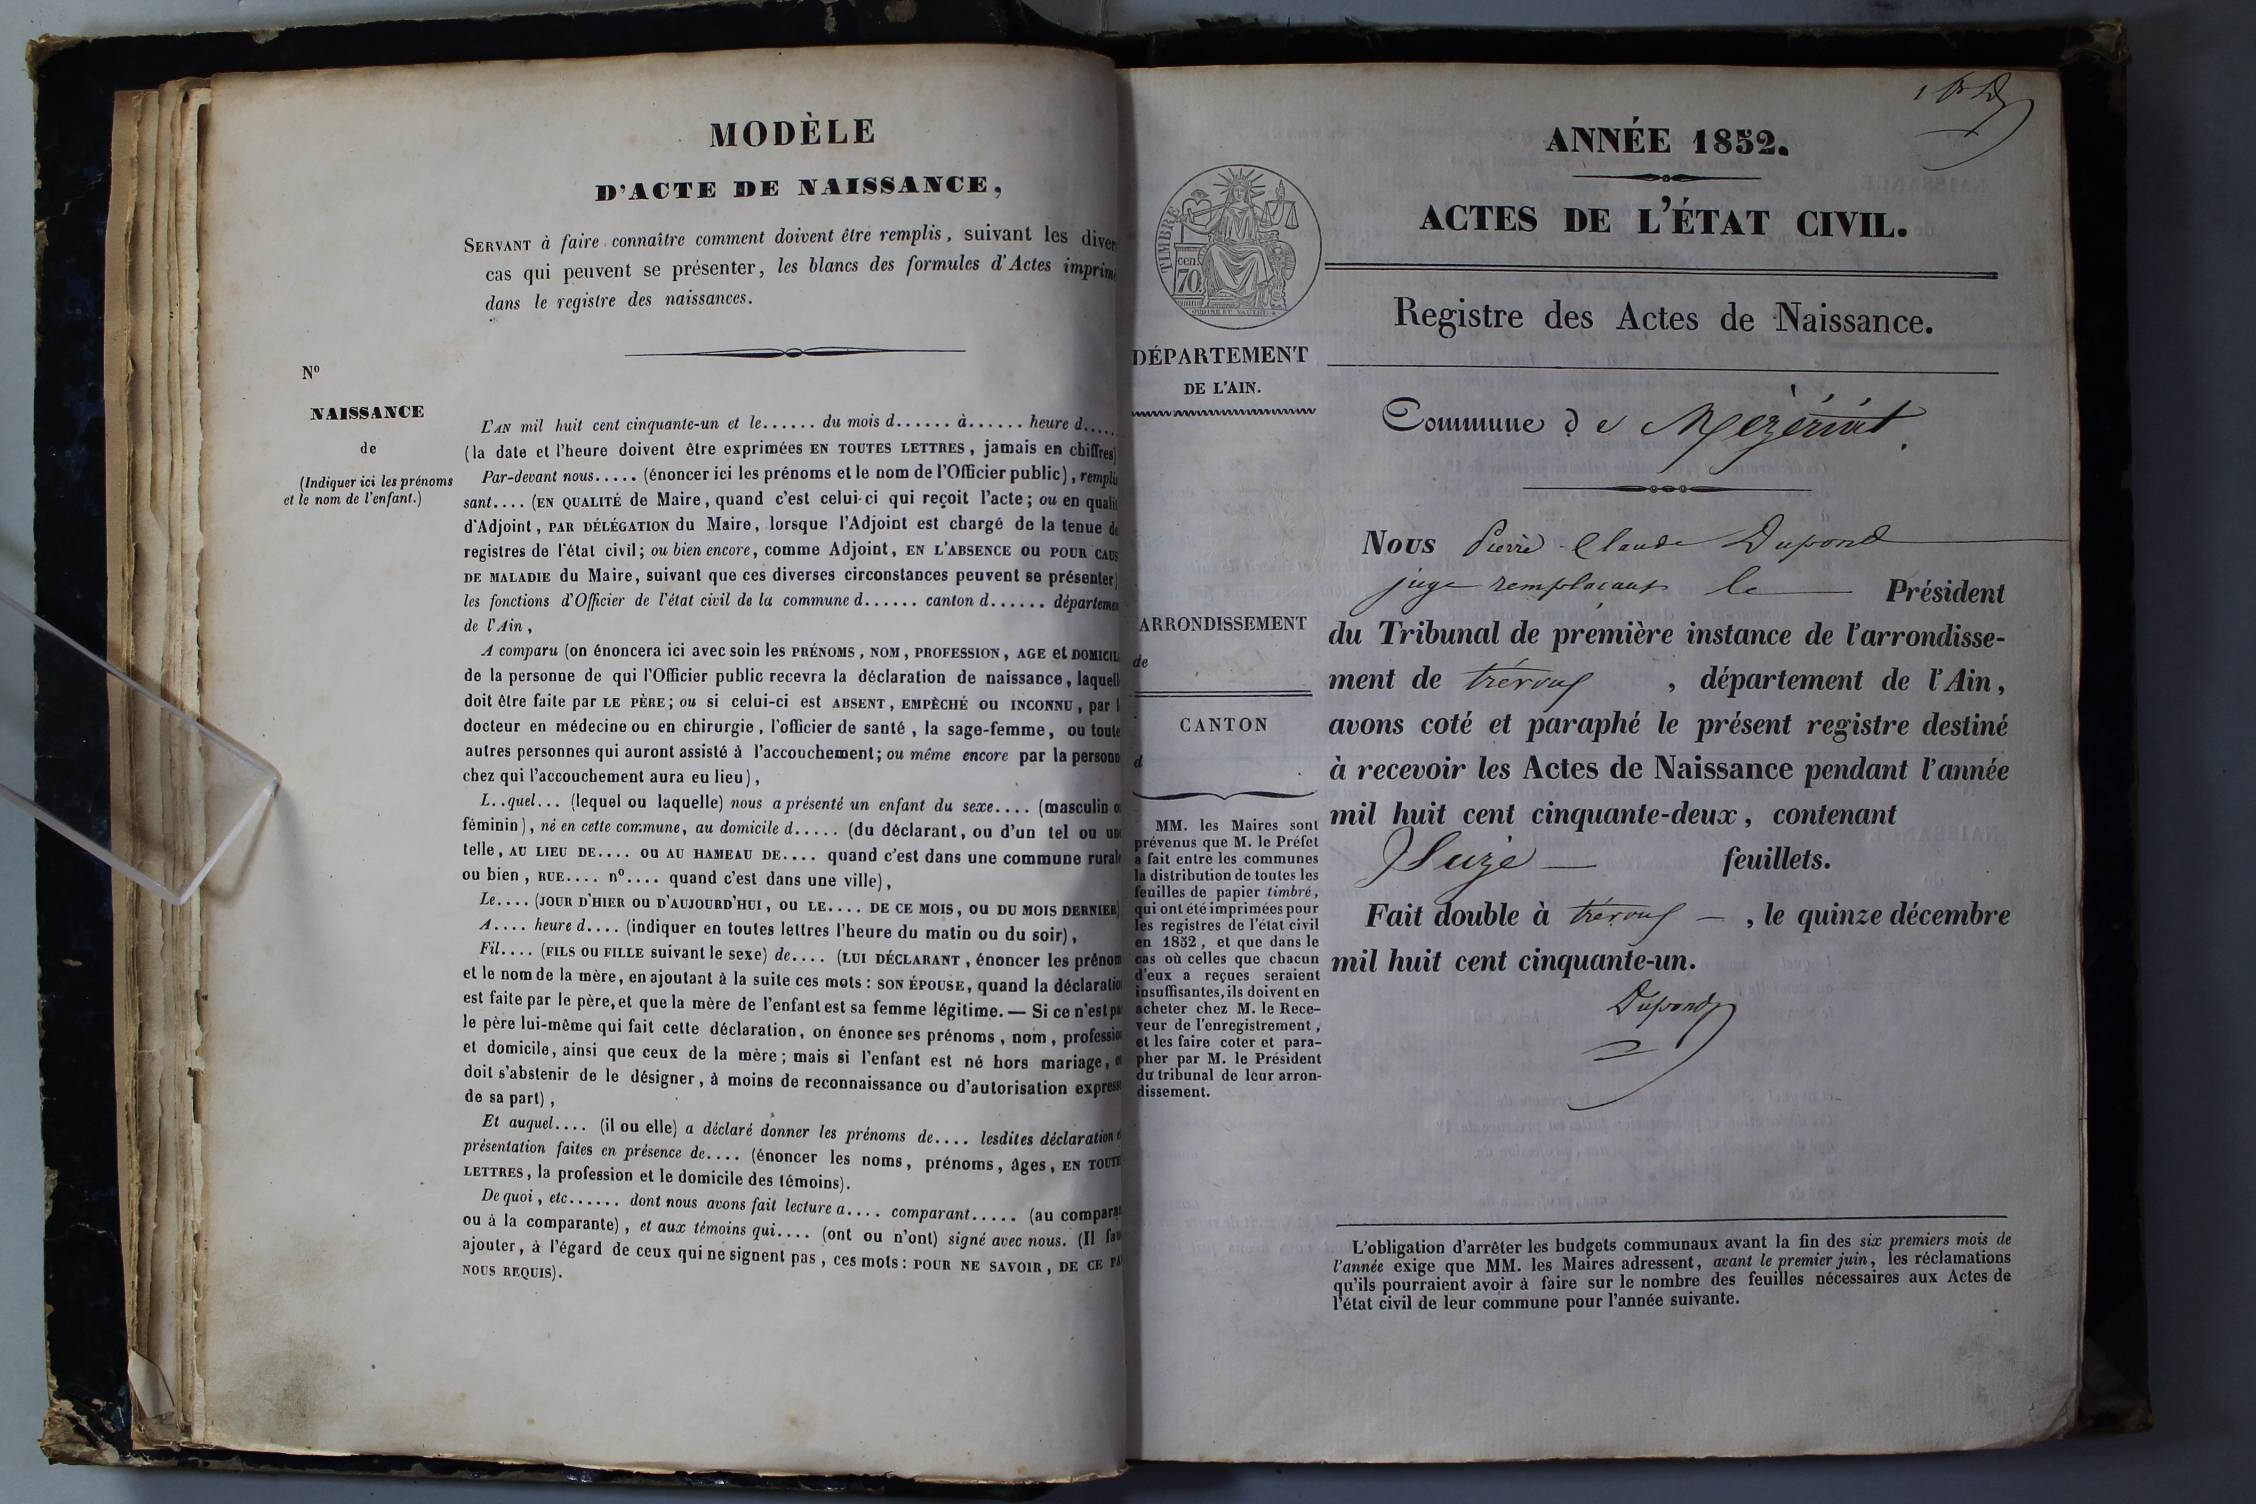 MODÈLE
D'ACTE DE NAISSANCE,
SERVANT à faire connaître comment doivent être remplis, suivant les diver
cas qui peuvent se présenter, les blancs des formules d'Actes imprim
dans le registre des naissances.
N°
NAISSANCE
de
(Indiquer ici les prénoms
et le nom de l'enfant.)
L'AN mil huit cent cinquante-un et le...... du mois d...... à...... heure d.....
(la date et l'heure doivent être exprimées EN TOUTES LETTRES, jamais en chiffres)
Par-devant nous..... (énoncer ici les prénoms et le nom de l'Officier public), remplis
sant.... (EN QUALITÉ de Maire, quand c'est celui-ci qui reçoit l'acte; ou en qualit
d'Adjoint, PAR DÉLÉGATION du Maire, lorsque l'Adjoint est chargé de la tenue de
registres de l'état civil; ou bien encore, comme Adjoint, EN L'ABSENCE OU POUR CAUS
DE MALADIE du Maire, suivant que ces diverses circonstances peuvent se présenter)
les fonctions d'Officier de l'état civil de la commune d...... canton d...... départemen
de l'Ain,
A comparu (on énoncera ici avec soin les PRÉNOMS, NOM, PROFESSION, AGE et DOMICIL
de la personne de qui l'Officier public recevra la déclaration de naissance, laquell
doit être faite par LE PÈRE; ou si celui-ci est ABSENT, EMPÊCHÉ OU INCONNU, par l
docteur en médecine ou en chirurgie, l'officier de santé, la sage-femme, ou toute
autres personnes qui auront assisté à l'accouchement; ou même encore par la personn
chez qui l'accouchement aura eu lieu),
L..quel... (lequel ou laquelle) nous a présenté un enfant du sexe.... (masculin o
féminin), né en cette commune, au domicile d..... (du déclarant, ou d'un tel ou un
telle, AU LIEU DE.... OU AU HAMEAU DE.... quand c'est dans une commune rural
ou bien, RUE.... n°.... quand c'est dans une ville),
Le.... (JOUR D'HIER OU D'AUJOURD'HUI, OU LE.... DE CE MOIS, OU DU MOIS DERNIER)
A.... heure d.... (indiquer en toutes lettres l'heure du matin ou du soir),
Fil.... (FILS OU FILLE suivant le sexe) de.... (LUI DÉCLARANT, énoncer les prénom
et le nom de la mère, en ajoutant à la suite ces mots: SON ÉPOUSE, quand la déclaratio
est faite par le père, et que la mère de l'enfant est sa femme légitime. — Si ce n'est pa
le père lui-même qui fait cette déclaration, on énonce ses prénoms, nom, profession
et domicile, ainsi que ceux de la mère; mais si l'enfant est né hors mariage, o
doit s'abstenir de le désigner, à moins de reconnaissance ou d'autorisation express
de sa part),
Et auquel.... (il ou elle) a déclaré donner les prénoms de.... lesdites déclaration e
présentation faites en présence de.... (énoncer les noms, prénoms, âges, EN TOUTE
LETTRES, la profession et le domicile des témoins).
De quoi, etc...... dont nous avons fait lecture a.... comparant..... (au comparan
ou à la comparante), et aux témoins qui.... (ont ou n'ont) signé avec nous. (Il fau
ajouter, à l'égard de ceux qui ne signent pas, ces mots: POUR NE SAVOIR, DE CE PA
NOUS REQUIS).
TIMBRE
70 cen.
DÉPARTEMENT
DE L'AIN.
ARRONDISSEMENT
de
CANTON
d
MM. les Maires sont
prévenus que M. le Préfet
a fait entre les communes
la distribution de toutes les
feuilles de papier timbré,
qui ont été imprimées pour
les registres de l'état civil
en 1852, et que dans le
cas où celles que chacun
d'eux a reçues seraient
insuffisantes, ils doivent en
acheter chez M. le Rece-
veur de l'enregistrement,
et les faire coter et para-
pher par M. le Président
du tribunal de leur arron-
dissement.
ANNÉE 1852.
ACTES DE L'ÉTAT CIVIL.
Registre des Actes de Naissance.
Commune de Mézériat.
Nous Pierre Claude Dupond
juge remplacant le Président
du Tribunal de première instance de l'arrondisse-
ment de trévoux, département de l'Ain,
avons coté et paraphé le présent registre destiné
à recevoir les Actes de Naissance pendant l'année
mil huit cent cinquante-deux, contenant
feuillets.
Fait double à trévoux —, le quinze décembre
mil huit cent cinquante-un.
Dupond
L'obligation d'arrêter les budgets communaux avant la fin des six premiers mois de
l'année exige que MM. les Maires adressent, avant le premier juin, les réclamations
qu'ils pourraient avoir à faire sur le nombre des feuilles nécessaires aux Actes de
l'état civil de leur commune pour l'année suivante.